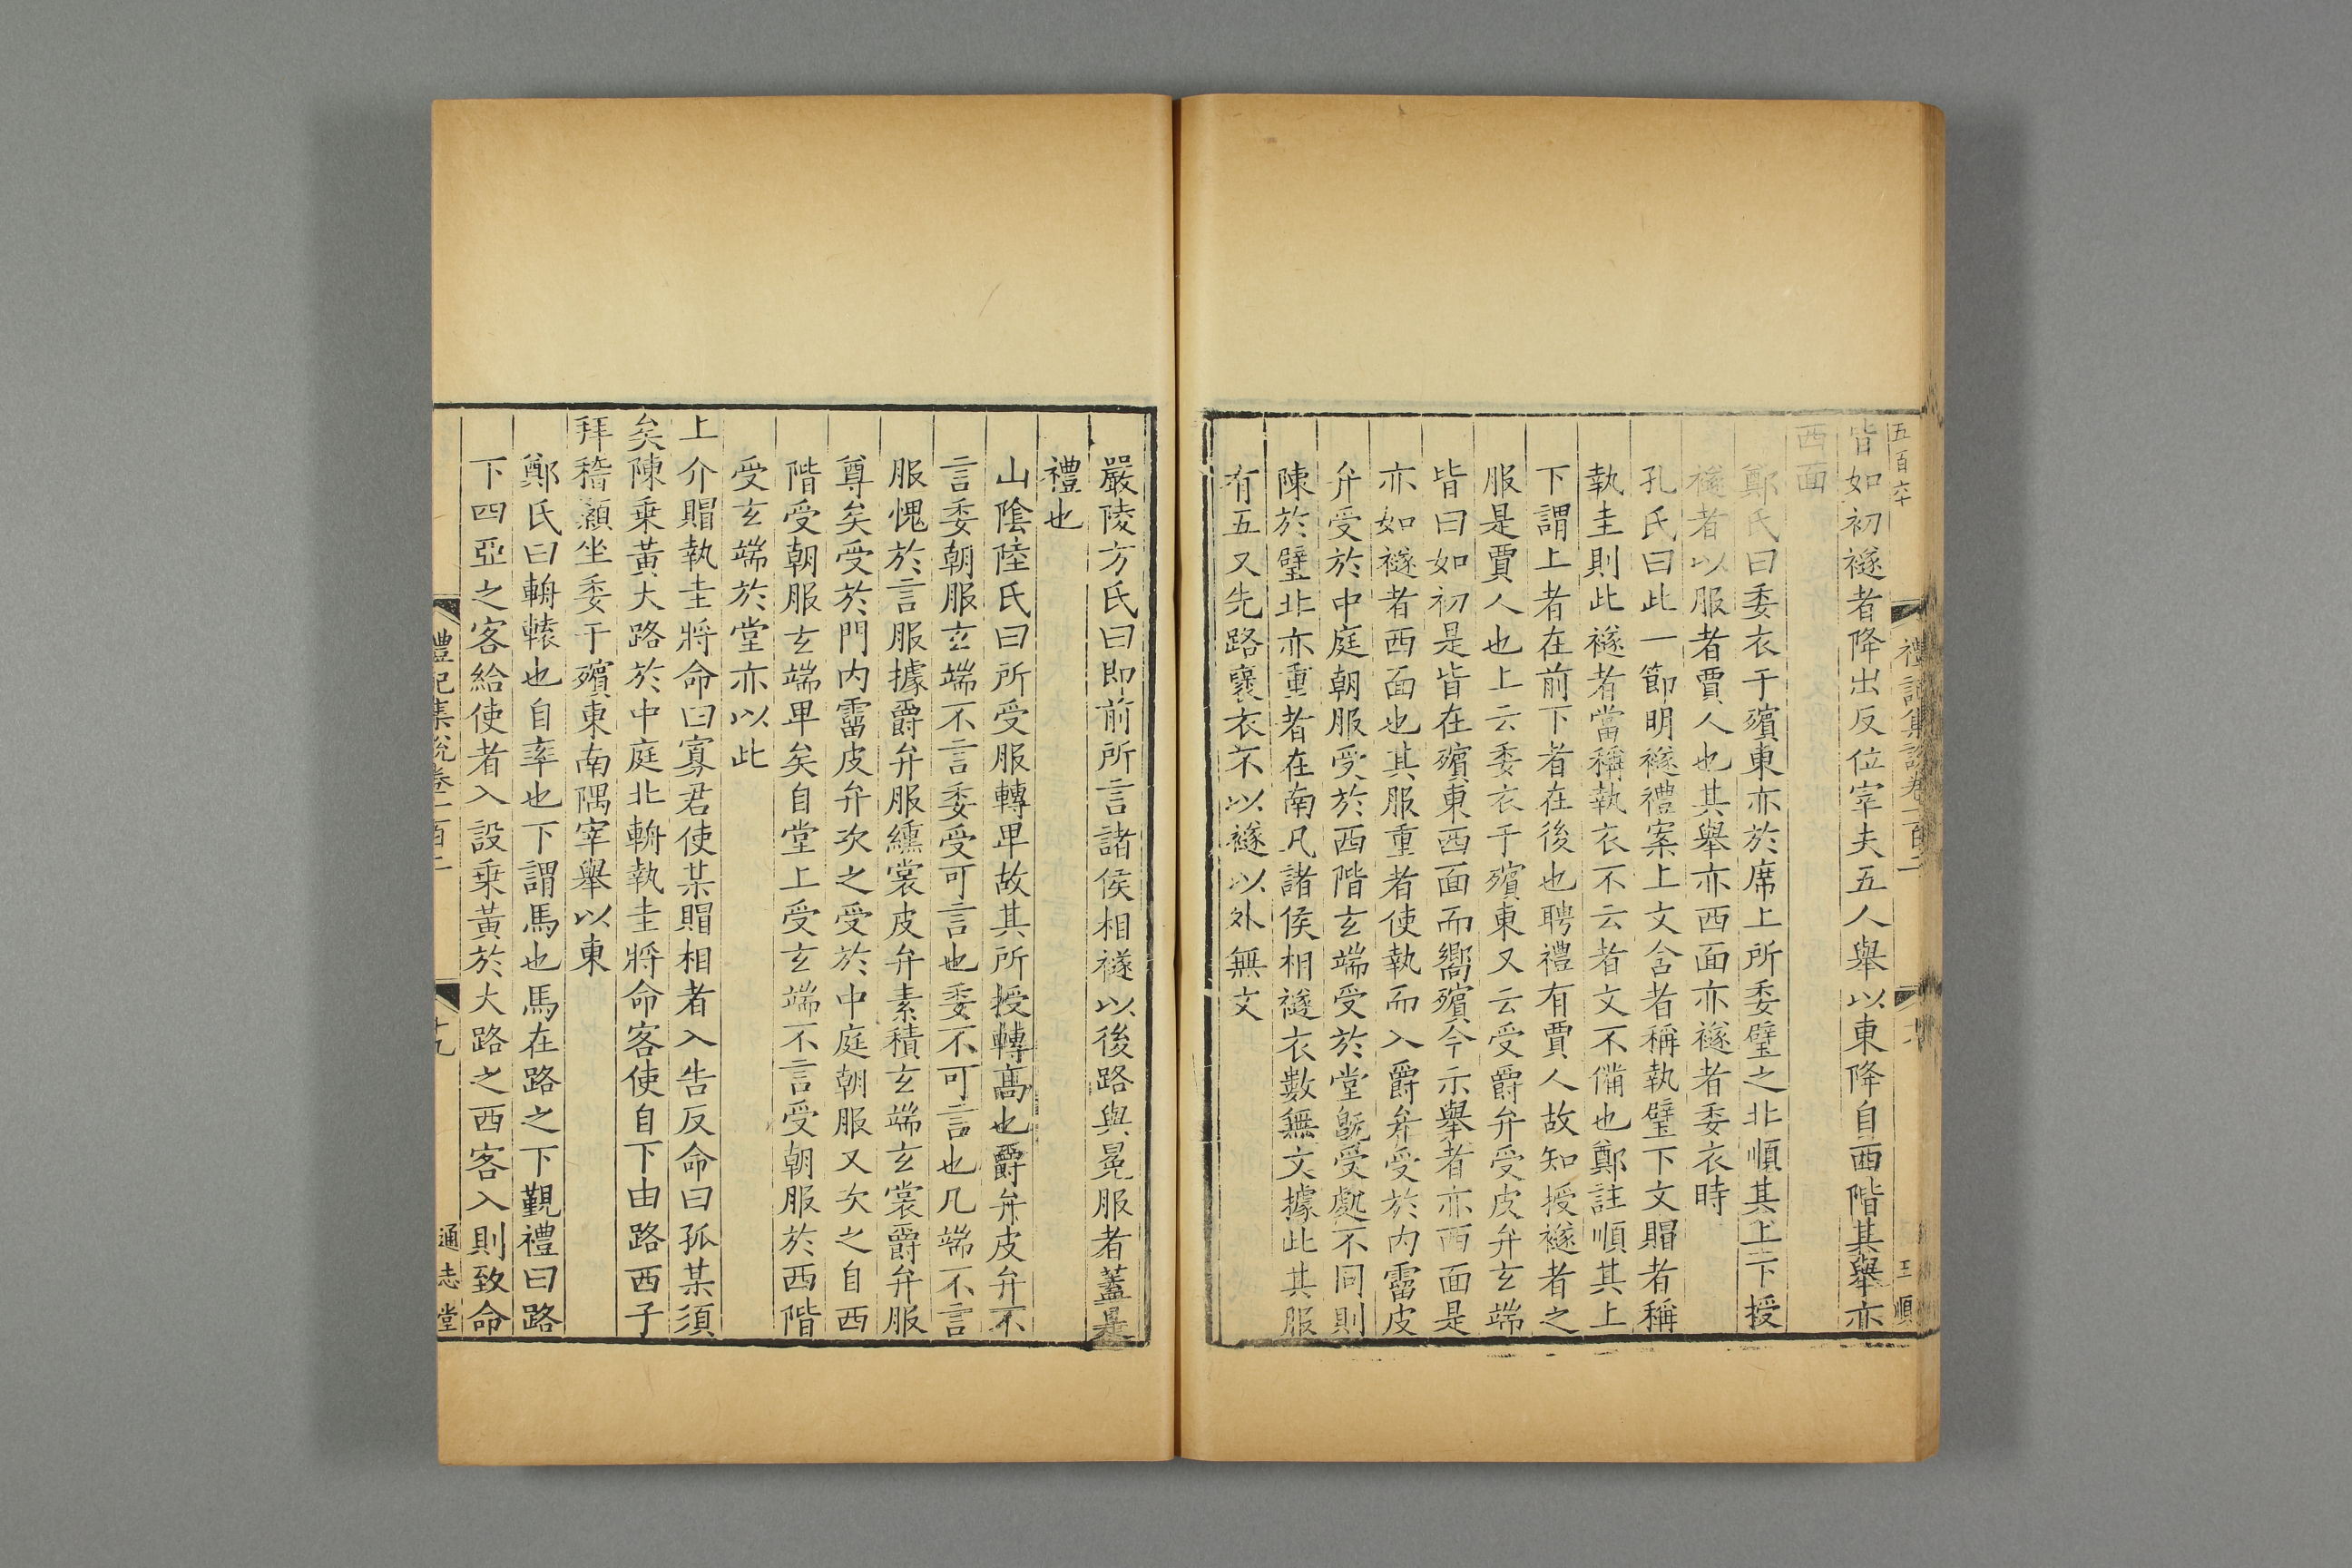 五百六十
禮記集說卷一百二
十八
王順
皆如初襚者降出反位宰夫五人舉以東降自西階其舉亦
西面
鄭氏曰委衣于殯東亦於席上所委璧之北順其上下授
襚者以服者賈人也其舉亦西面亦襚者委衣時
孔氏曰此一節明襚禮案上文含者稱執璧下文賵者稱
執圭則此襚者當稱執衣不云者文不備也鄭註順其上
下謂上者在前下者在後也聘禮有賈人故知授襚者之
服是賈人也上云委衣于殯東又云受爵弁受皮弁玄端
皆曰如初是皆在殯東西面而嚮殯今示舉者亦西面是
亦如襚者西面也其服重者使執而入爵弁受於内霤皮
弁受於中庭朝服受於西階玄端受於堂旣受處不同則
陳於璧北亦重者在南凡諸侯相襚衣數無文據此其服
有五又先路襃衣不以襚以外無文
嚴陵方氏曰即前所言諸侯相襚以後路與冕服者蓋是
禮也
山隂陸氏曰所受服轉𤰞故其所授轉髙也爵弁皮弁不
言委朝服玄端不言委受可言也委不可言也几端不言
服愧於言服據爵弁服纁裳皮弁素積玄端玄裳爵弁服
尊矣受於門内霤皮弁次之受於中庭朝服又次之自西
階受朝服玄端𤰞矣自堂上受玄端不言受朝服於西階
受玄端於堂亦以此
上介賵執圭將命曰寡君使某賵相者入告反命曰孤某須
矣陳乗黃大路於中庭北輈執圭將命客使自下由路西子
拜稽顙坐委于殯東南隅宰舉以東
鄭氏曰輈轅也自率也下謂馬也馬在路之下觀禮曰路
下四亞之客給使者入設乗黃於大路之西客入則致命
禮記集說卷一百二
十九
通志堂